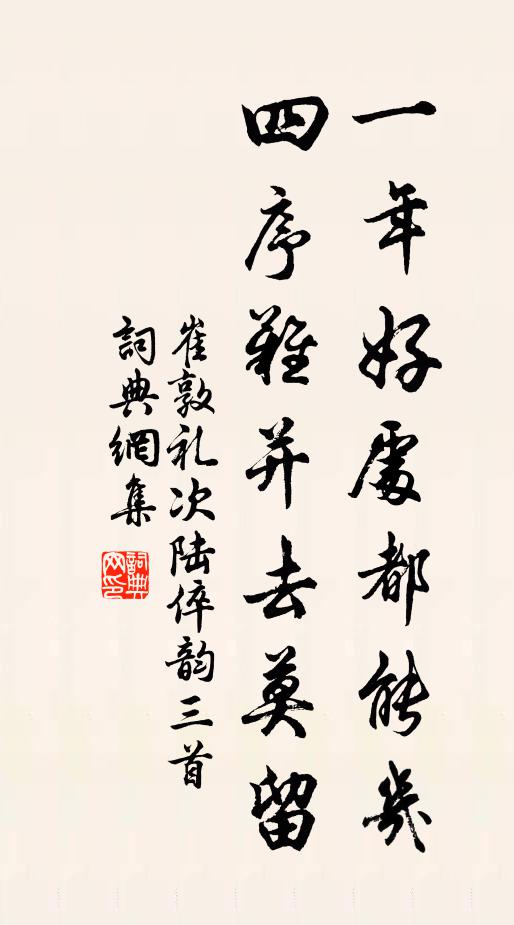 一年好處都能幾
四序難并去莫留
崔敦礼次陆倅韵三首
詞典網集
詞典網印